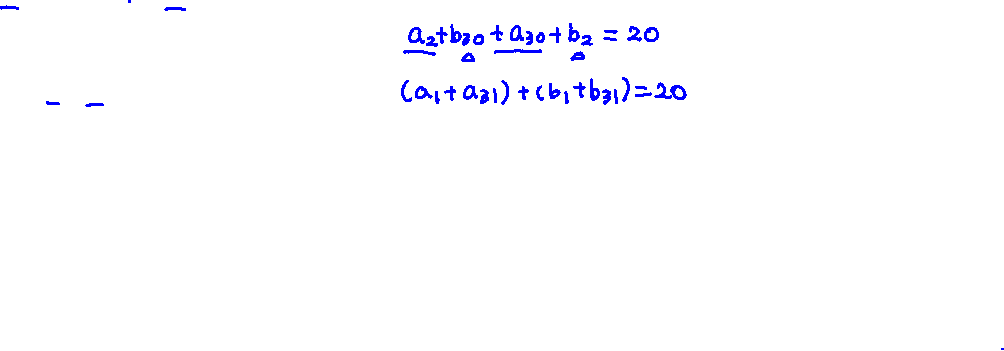 a₂+b₃₀+a₃₀+b₂=20
(a₁+a₃₁)+(b₁+b₃₁)=20